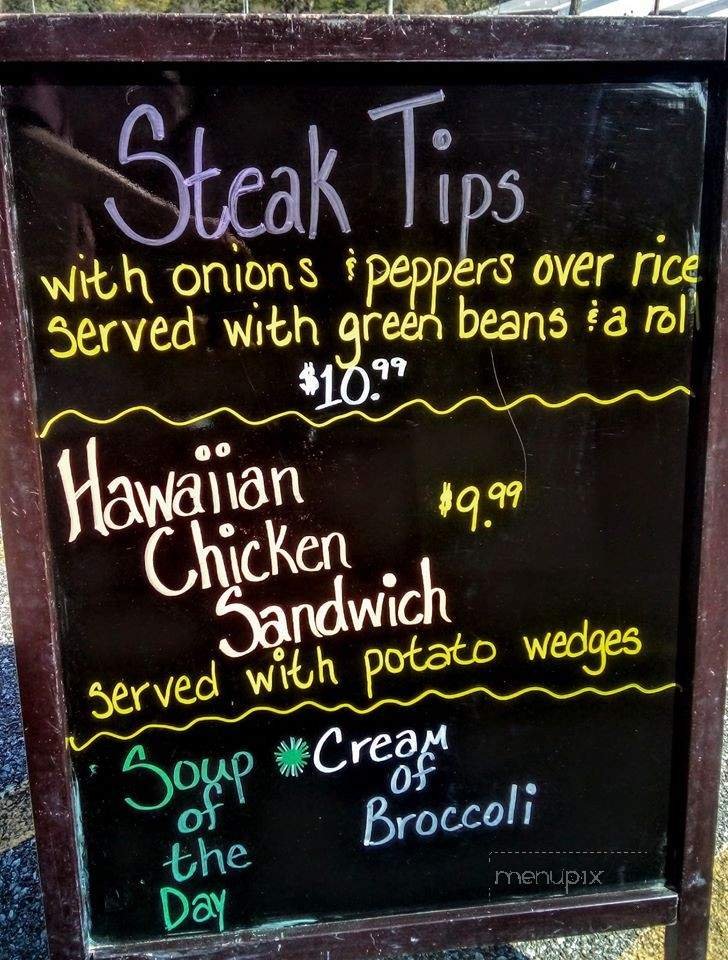 Steak Tips
with onions & peppers over rice
served with green beans & a rol
$10.99
Hawaiian
Chicken
Sandwich
$9.99
served with potato wedges
Soup
of
the
Day
Cream
of
Broccoli
menupix